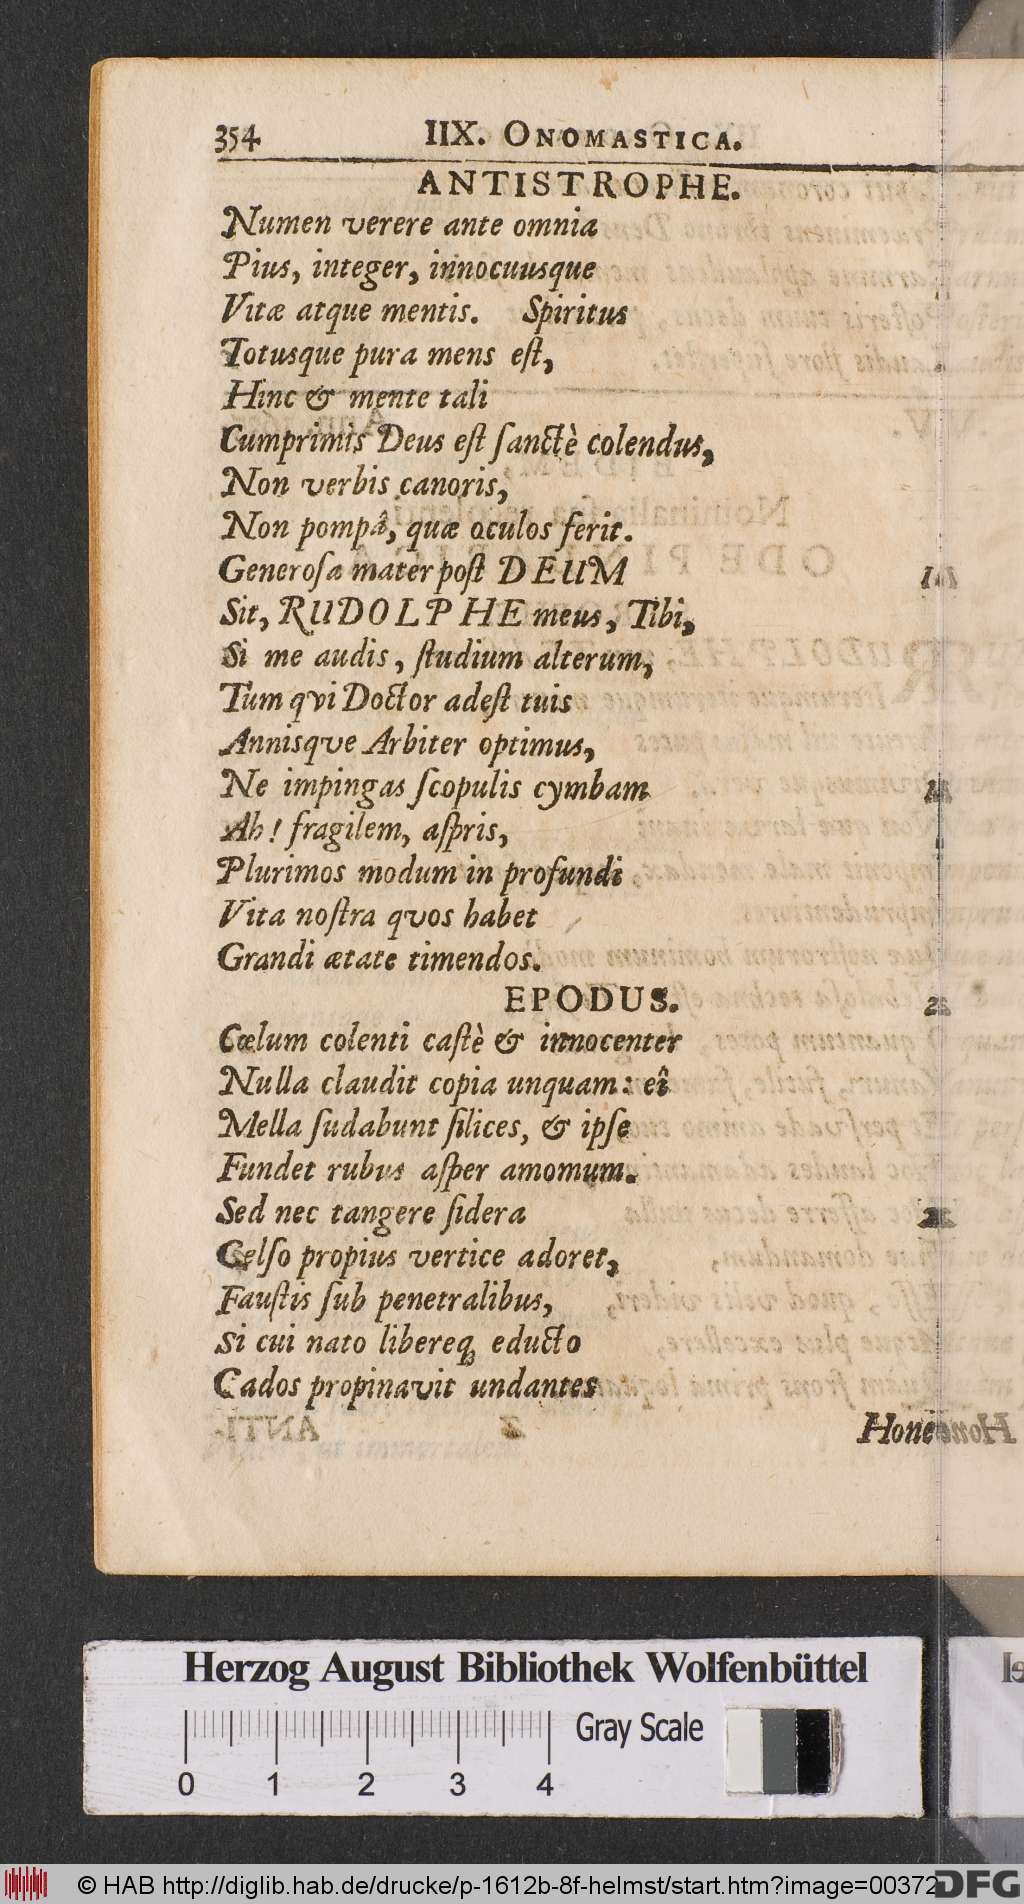 354 IIX. ONOMASTICA.
ANTISTROPHE.
Numen verere ante omnia
Pius, integer, innocuusque
Vitæ atque mentis. Spiritus
Totusque pura mens eſt,
Hinc & mente tali
Cumprimis Deus eſt ſanctè colendus,
Non verbis canoris,
Non pompâ, quæ oculos ferit.
Generoſa mater poſt DEUM
Sit, RUDOLPHE meus, Tibi,
Si me audis, ſtudium alterum,
Tum qvi Doctor adeſt tuis
Annisqve Arbiter optimus,
Ne impingas ſcopulis cymbam
Ah! fragilem, aſpris,
Plurimos modum in profundi
Vita noſtra qvos habet
Grandi ætate timendos.
EPODUS.
Cœlum colenti caſtè & innocenter
Nulla claudit copia unquam: eî
Mella ſudabunt ſilices, & ipſe
Fundet rubus aſper amomum.
Sed nec tangere ſidera
Celſo propius vertice adoret,
Fauſtis ſub penetralibus,
Si cui nato libereq; educto
Cados propinavit undantes
Hone
Herzog August Bibliothek Wolfenbüttel
Gray Scale
0 1 2 3 4
© HAB http://diglib.hab.de/drucke/p-1612b-8f-helmst/start.htm?image=00372
DFG